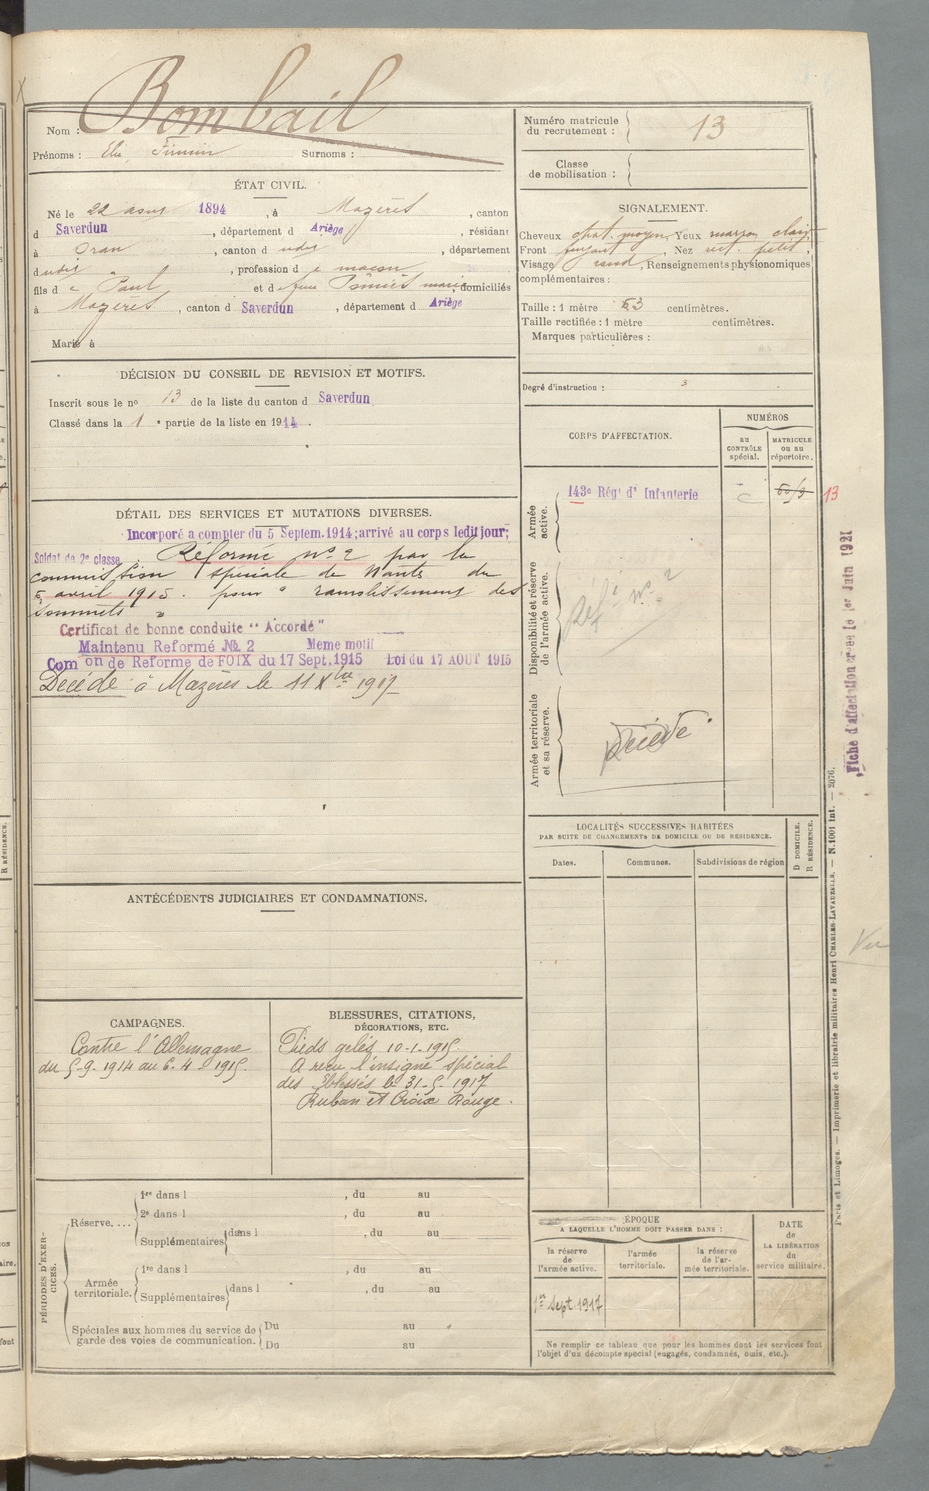 Bombail
Nom :
Prénoms : Elie, Firmin Surnoms :
Numéro matricule
du recrutement : 13
Classe
de mobilisation :
ÉTAT CIVIL.
Né le 22 août 1894, à Mazères, canton
d Saverdun, département d Ariège, résidant
à Oran, canton d udit, département
dudit, profession d e maçon
fils d e Paul et d e feue Pomiès mariés, domiciliés
à Mazères, canton d Saverdun, département d Ariège
Marié à
SIGNALEMENT.
Cheveux chat. moyen Yeux marron clair
Front fuyant Nez rect. petit,
Visage rond, Renseignements physionomiques
complémentaires :
Taille : 1 mètre 63 centimètres.
Taille rectifiée : 1 mètre centimètres.
Marques particulières :
Degré d'instruction : 3
DÉCISION DU CONSEIL DE REVISION ET MOTIFS.
Inscrit sous le no 13 de la liste du canton d Saverdun
Classé dans la 1e partie de la liste en 1914.
CORPS D'AFFECTATION.
NUMÉROS
au
CONTRÔLE
spécial.
MATRICULE
ou au
répertoire.
Armée
active.
143e Régt d' Infanterie
13
Disponibilité et réserve
de l'armée active.
Réfé no 2
Armée territoriale
et sa réserve.
Décédé
DÉTAIL DES SERVICES ET MUTATIONS DIVERSES.
Incorporé a compter du 5 Septem. 1914; arrivé au corps ledit jour;
Soldat de 2e classe Réformé no 2 par la
commission spéciale de Nantes du
5 avril 1915. pour " ramolissement des
sommets "
Certificat de bonne conduite "Accordé"
Maintenu Reformé No 2 Meme motif
Com on de Reforme de FOIX du 17 Sept. 1915 Loi du 17 AOUT 1915
Décédé à Mazères le 11 Xbre 1917
Fiche d'affectation créée le 1er Juin 1921
LOCALITÉS SUCCESSIVES HABITÉES
PAR SUITE DE CHANGEMENTS DE DOMICILE OU DE RÉSIDENCE.
Dates.
Communes.
Subdivisions de région
D DOMICILE.
R RÉSIDENCE.
ANTÉCÉDENTS JUDICIAIRES ET CONDAMNATIONS.
Vu
CAMPAGNES.
Contre l'Allemagne
du 5-9-1914 au 6-4-1915.
BLESSURES, CITATIONS,
DÉCORATIONS, ETC.
Pieds gelés 10-1-1915.
A reçu l'insigne spécial
des blessés le 31-5-1917
Ruban et Croix Rouge.
PÉRIODES D'EXER-
CICES.
Réserve. ...
1re dans l , du au
2e dans l , du au
Supplémentaires dans l , du au
Armée
territoriale.
1re dans l , du au
Supplémentaires dans l , du au
Spéciales aux hommes du service de
garde des voies de communication.
Du au
Du au
ÉPOQUE
A LAQUELLE L'HOMME DOIT PASSER DANS :
la réserve
de
l'armée active.
l'armée
territoriale.
la réserve
de l'ar-
mée territoriale.
DATE
de
LA LIBÉRATION
du
service militaire.
1er Sept. 1917
Ne remplir ce tableau que pour les hommes dont les services font
l'objet d'un décompte spécial (engagés, condamnés, omis, etc.).
Paris et Limoges. — Imprimerie et librairie militaires Henri CHARLES-LAVAUZELLE. — N. 1001 Int. — 2076.